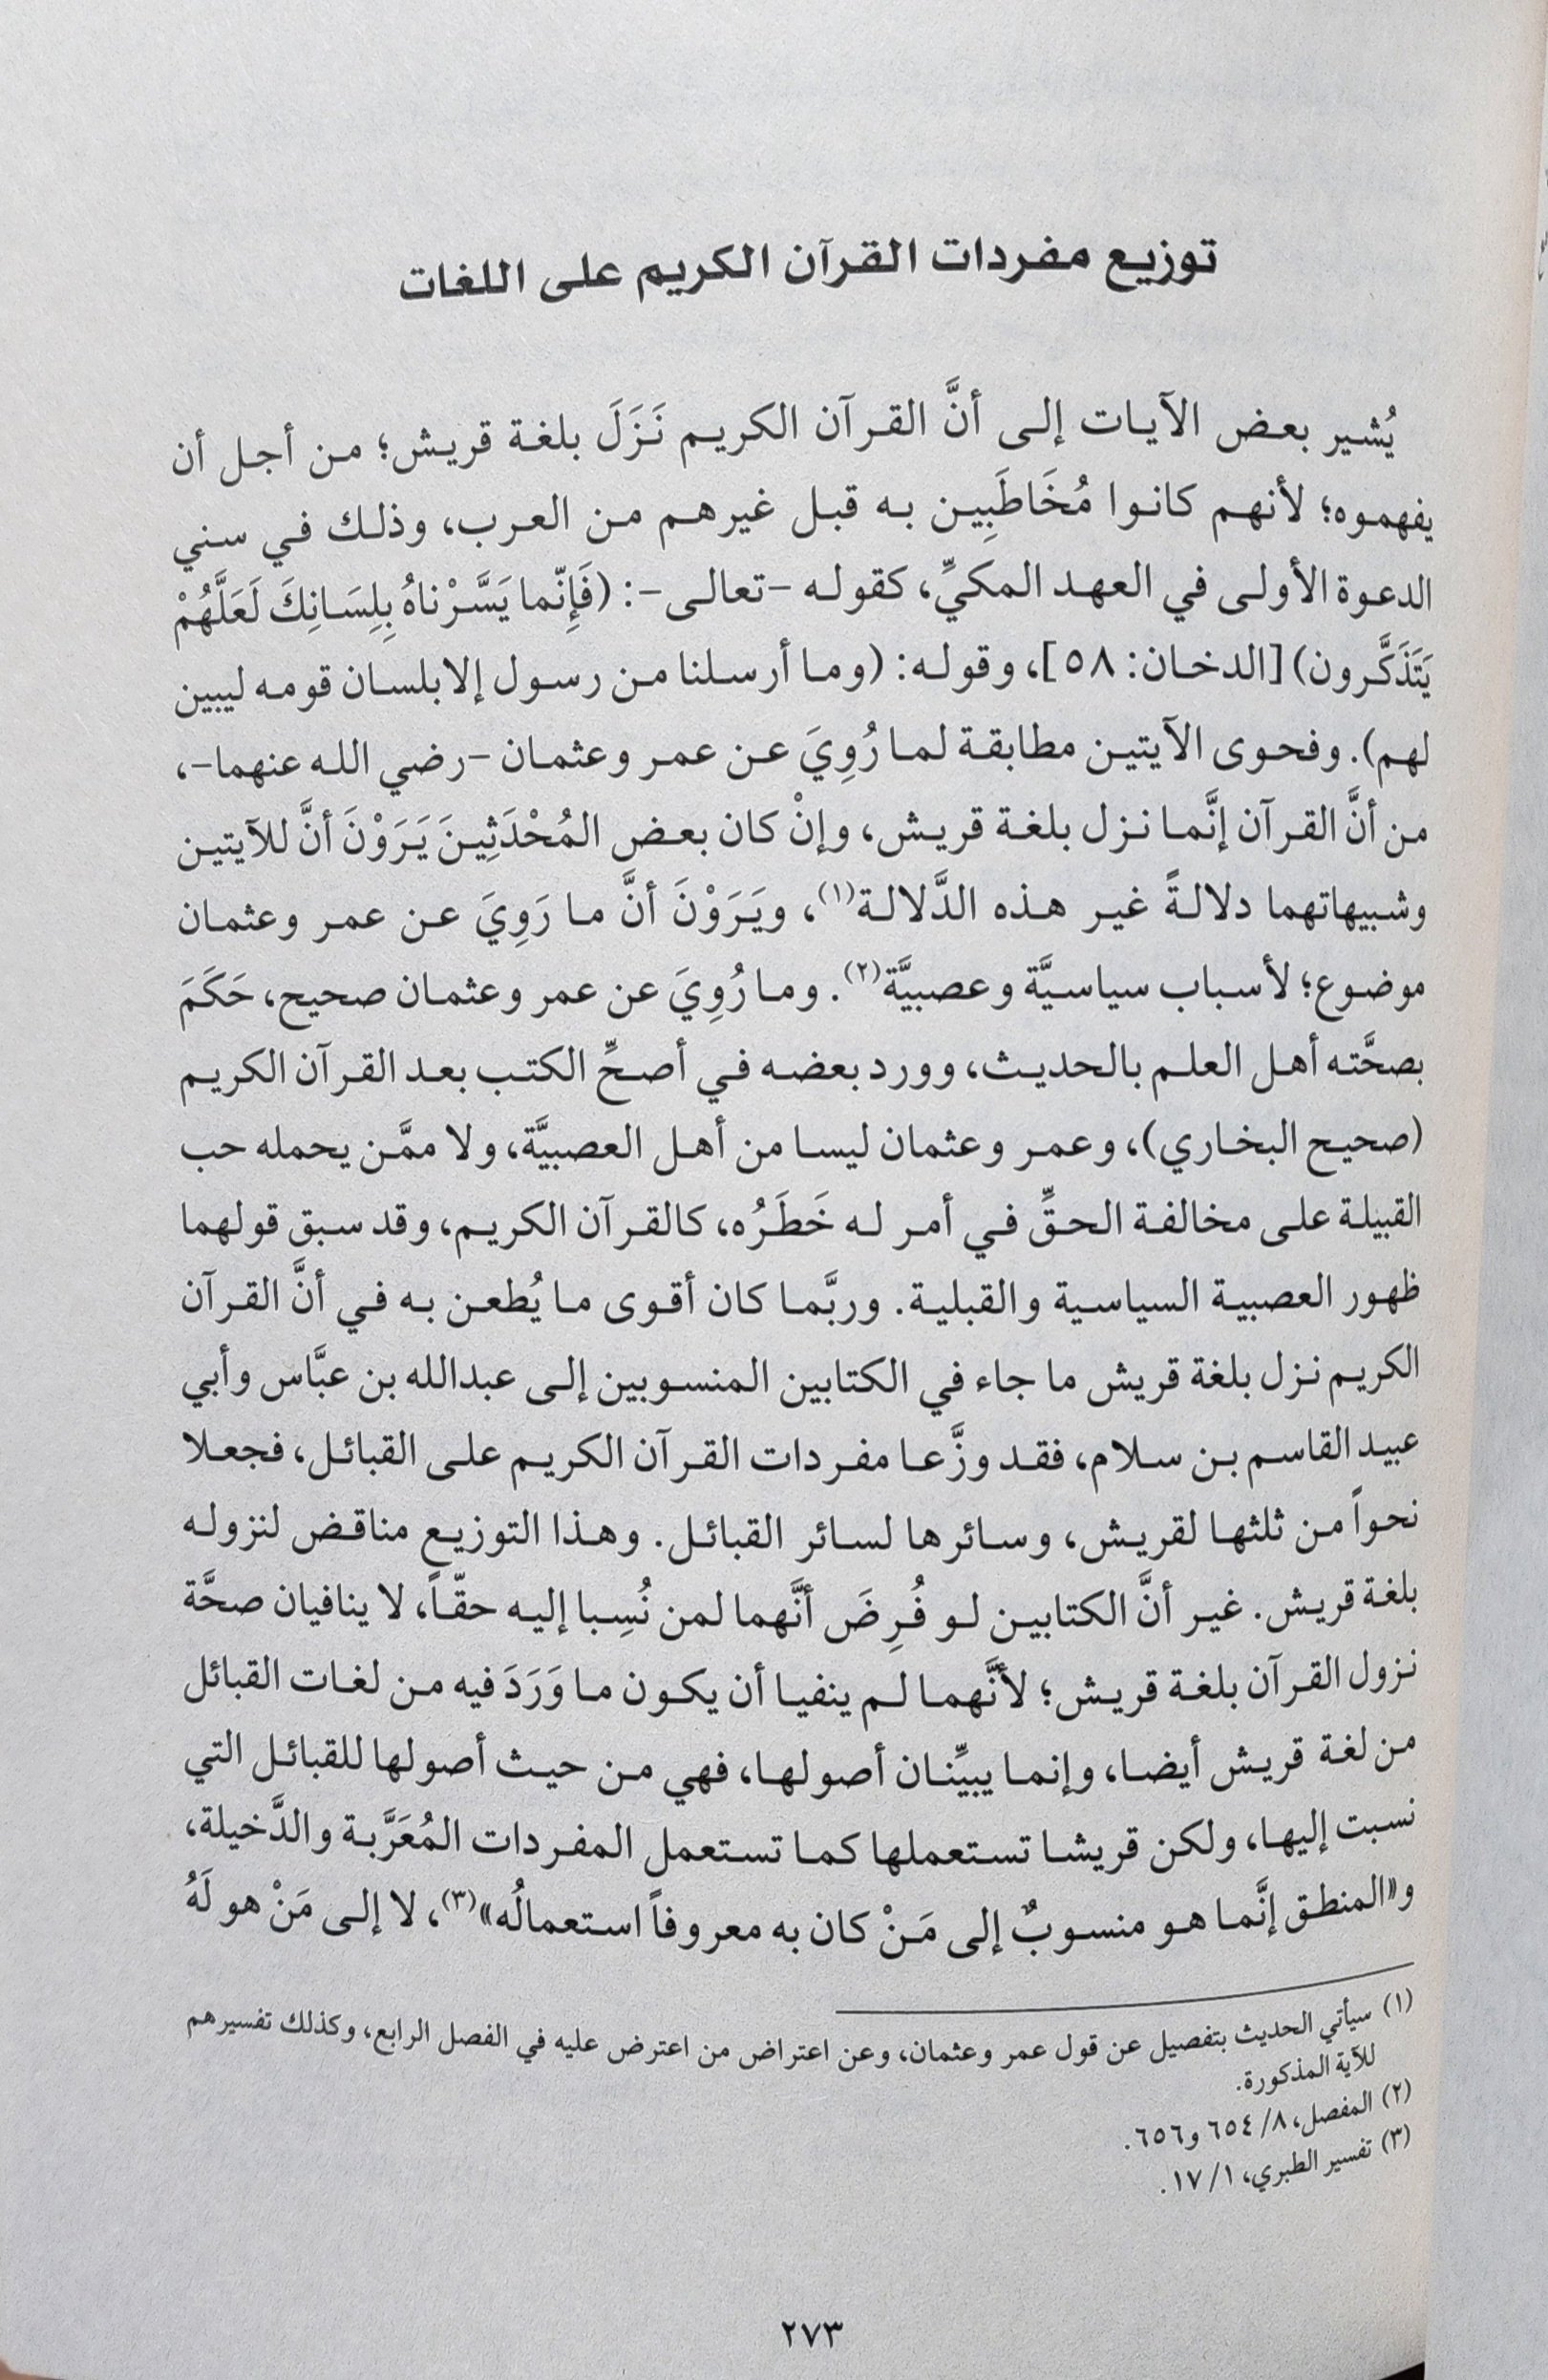 توزيع مفردات القرآن الكريم على اللغات
يُشير بعض الآيات إلى أنَّ القرآن الكريم نَزَلَ بلغة قريش؛ من أجل أن
يفهموه؛ لأنهم كانوا مُخَاطَبِين به قبل غيرهم من العرب، وذلك في سني
الدعوة الأولى في العهد المكيِّ، كقوله -تعالى-: (فَإِنّما يَسَّرْناهُ بِلِسَانِكَ لَعَلَّهُمْ
يَتَذَكَّرون) [الدخان: ٥٨]، وقوله: (وما أرسلنا من رسول إلا بلسان قومه ليبين
لهم). وفحوى الآيتين مطابقة لما رُوِيَ عن عمر وعثمان -رضي الله عنهما-،
من أنَّ القرآن إنَّما نزل بلغة قريش، وإنْ كان بعض المُحْدَثِينَ يَرَوْنَ أنَّ للآيتين
وشبيهاتهما دلالةً غير هذه الدَّلالة(١)، ويَرَوْنَ أنَّ ما رَوِيَ عن عمر وعثمان
موضوع؛ لأسباب سياسيَّة وعصبيَّة(٢). وما رُوِيَ عن عمر وعثمان صحيح، حَكَمَ
بصحَّته أهل العلم بالحديث، وورد بعضه في أصحِّ الكتب بعد القرآن الكريم
(صحيح البخاري)، وعمر وعثمان ليسا من أهل العصبيَّة، ولا ممَّن يحمله حب
القبيلة على مخالفة الحقِّ في أمر له خَطَرُه، كالقرآن الكريم، وقد سبق قولهما
ظهور العصبية السياسية والقبلية. وربَّما كان أقوى ما يُطعن به في أنَّ القرآن
الكريم نزل بلغة قريش ما جاء في الكتابين المنسوبين إلى عبدالله بن عبَّاس وأبي
عبيد القاسم بن سلام، فقد وزَّعا مفردات القرآن الكريم على القبائل، فجعلا
نحواً من ثلثها لقريش، وسائرها لسائر القبائل. وهذا التوزيع مناقض لنزوله
بلغة قريش. غير أنَّ الكتابين لو فُرِضَ أنَّهما لمن نُسِبا إليه حقّاً، لا ينافيان صحَّة
نزول القرآن بلغة قريش؛ لأنَّهما لم ينفيا أن يكون ما وَرَدَ فيه من لغات القبائل
من لغة قريش أيضا، وإنما يبيِّنان أصولها، فهي من حيث أصولها للقبائل التي
نسبت إليها، ولكن قريشا تستعملها كما تستعمل المفردات المُعَرَّبة والدَّخيلة،
و«المنطق إنَّما هو منسوبٌ إلى مَنْ كان به معروفاً استعمالُه»(٣)، لا إلى مَنْ هو لَهُ
(١) سيأتي الحديث بتفصيل عن قول عمر وعثمان، وعن اعتراض من اعترض عليه في الفصل الرابع، وكذلك تفسيرهم
للآية المذكورة.
(٢) المفصل، ٨/ ٦٥٤ و٦٥٦.
(٣) تفسير الطبري، ١/ ١٧.
٢٧٣